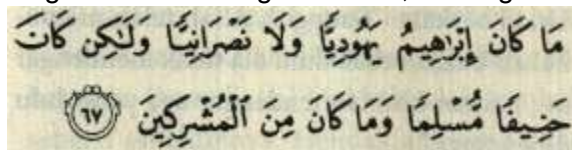 مَا كَانَ إِبْرَٰهِيمُ يَهُودِيًّا وَلَا نَصْرَانِيًّا وَلَٰكِن كَانَ
حَنِيفًا مُّسْلِمًا وَمَا كَانَ مِنَ ٱلْمُشْرِكِينَ ٦٧